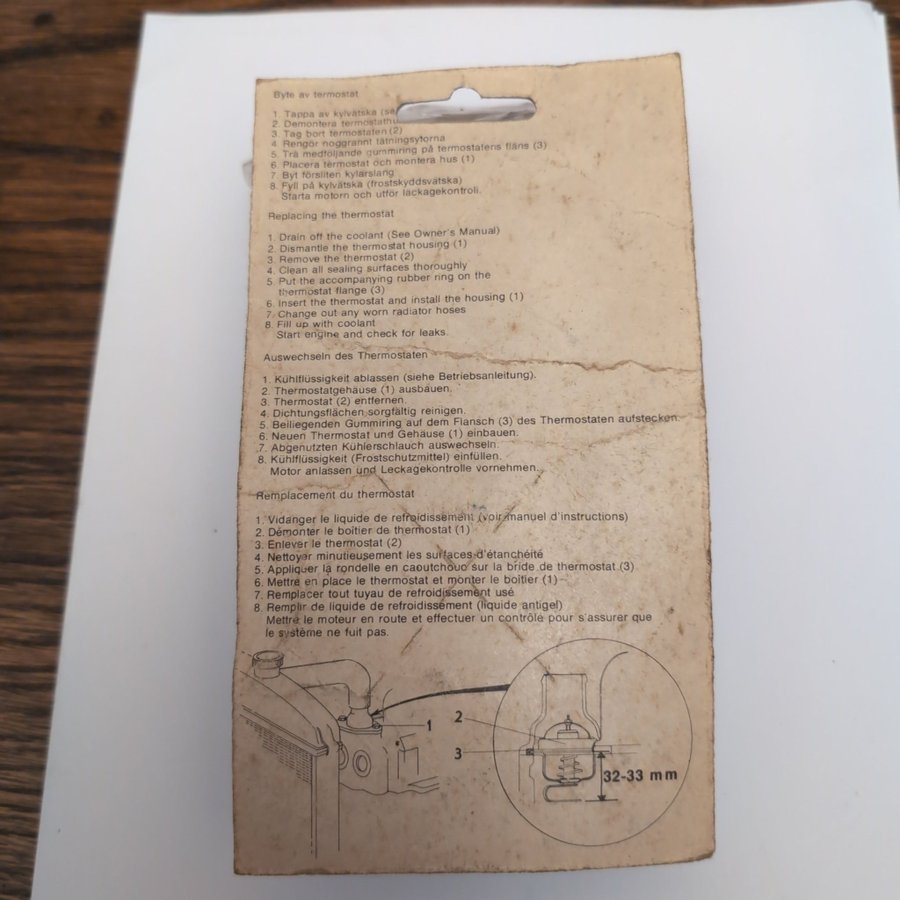 Byte av termostat
1 Tappa av kylvätska (se
2. Demontera termostathu
3. Tag bort termostaten (2)
4 Rengör noggrannt tätningsytorna
5. Trä medföljande gummiring på termostatens fläns (3)
6. Placera termostat och montera hus (1)
7. Byt försliten kylarslang
8. Fyll på kylvätska (frostskyddsvätska)
Starta motorn och utför läckagekontroll.
Replacing the thermostat
1. Drain off the coolant (See Owner's Manual)
2. Dismantle the thermostat housing (1)
3. Remove the thermostat (2)
4. Clean all sealing surfaces thoroughly
5. Put the accompanying rubber ring on the
thermostat flange (3)
6. Insert the thermostat and install the housing (1)
7. Change out any worn radiator hoses
8. Fill up with coolant
Start engine and check for leaks.
Auswechseln des Thermostaten
1. Kühlflüssigkeit ablassen (siehe Betriebsanleitung).
2. Thermostatgehäuse (1) ausbauen.
3. Thermostat (2) entfernen.
4. Dichtungsflächen sorgfältig reinigen.
5. Beiliegenden Gummiring auf dem Flansch (3) des Thermostaten aufstecken.
6. Neuen Thermostat und Gehäuse (1) einbauen.
7. Abgenutzten Kühlerschlauch auswechseln.
8. Kühlflüssigkeit (Frostschutzmittel) einfüllen.
Motor anlassen und Leckagekontrolle vornehmen.
Remplacement du thermostat
1. Vidanger le liquide de refroidissement (voir manuel d'instructions)
2. Démonter le boîtier de thermostat (1)
3. Enlever le thermostat (2)
4. Nettoyer minutieusement les surfaces d'étanchéité
5. Appliquer la rondelle en caoutchouc sur la bride de thermostat (3)
6. Mettre en place le thermostat et monter le boîtier (1)
7. Remplacer tout tuyau de refroidissement usé
8. Remplir de liquide de refroidissement (liquide antigel)
Mettre le moteur en route et effectuer un contrôle pour s'assurer que
le système ne fuit pas.
1
2
3
32-33 mm